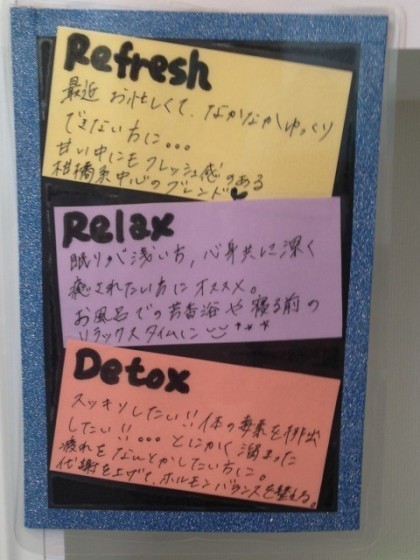 Refresh
最近 お忙しくて、なかなかゆっくり
できない方に。。。
甘い中にもフレッシュ感のある
柑橘系中心のブレンド♥
Relax
眠りが浅い方、心身共に深く
癒されたい方にオススメ。
お風呂での芳香浴や寝る前の
リラックスタイムに
Detox
スッキリしたい!! 体の毒素を排出
したい!! 。。。とにかく溜まった
疲れをなんとかしたい方に。
代謝を上げて、ホルモンバランスを整える。